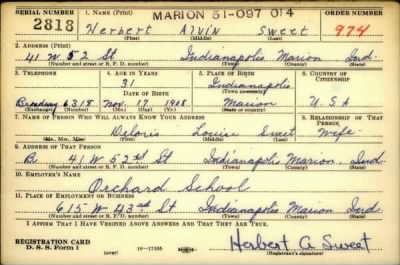 SERIAL NUMBER 1. NAME (Print) MARION 31-097 014 ORDER NUMBER
2818 Herbert ALVIN Sweet 974
(First) (Middle) (Last)
2. ADDRESS (Print)
41 W 52 St Indianapolis Marion Ind.
(Number and street or R. F. D. number) (Town) (County) (State)
3. TELEPHONE 4. AGE IN YEARS 5. PLACE OF BIRTH 6. COUNTRY OF CITIZENSHIP
31 Indianapolis
DATE OF BIRTH (Town)
Broadway 6318 Nov. 17 1908 Marion U.S.A
(Exchange) (Number) (Mo.) (Day) (Yr.) (State or country)
7. NAME OF PERSON WHO WILL ALWAYS KNOW YOUR ADDRESS 8. RELATIONSHIP OF THAT PERSON
Deloris Louise Sweet Wife
(Mr., Mrs., Miss) (First) (Middle) (Last)
9. ADDRESS OF THAT PERSON
41 W 52nd St Indianapolis Marion. Ind.
(Number and street or R. F. D. number) (Town) (County) (State)
10. EMPLOYER'S NAME
Orchard School
11. PLACE OF EMPLOYMENT OR BUSINESS
615 W 43rd St Indianapolis Marion Ind.
(Number and street or R. F. D. number) (Town) (County) (State)
I AFFIRM THAT I HAVE VERIFIED ABOVE ANSWERS AND THAT THEY ARE TRUE.
REGISTRATION CARD
D. S. S. Form 1 (over) 16—17105 Herbert A. Sweet
(Registrant's signature)